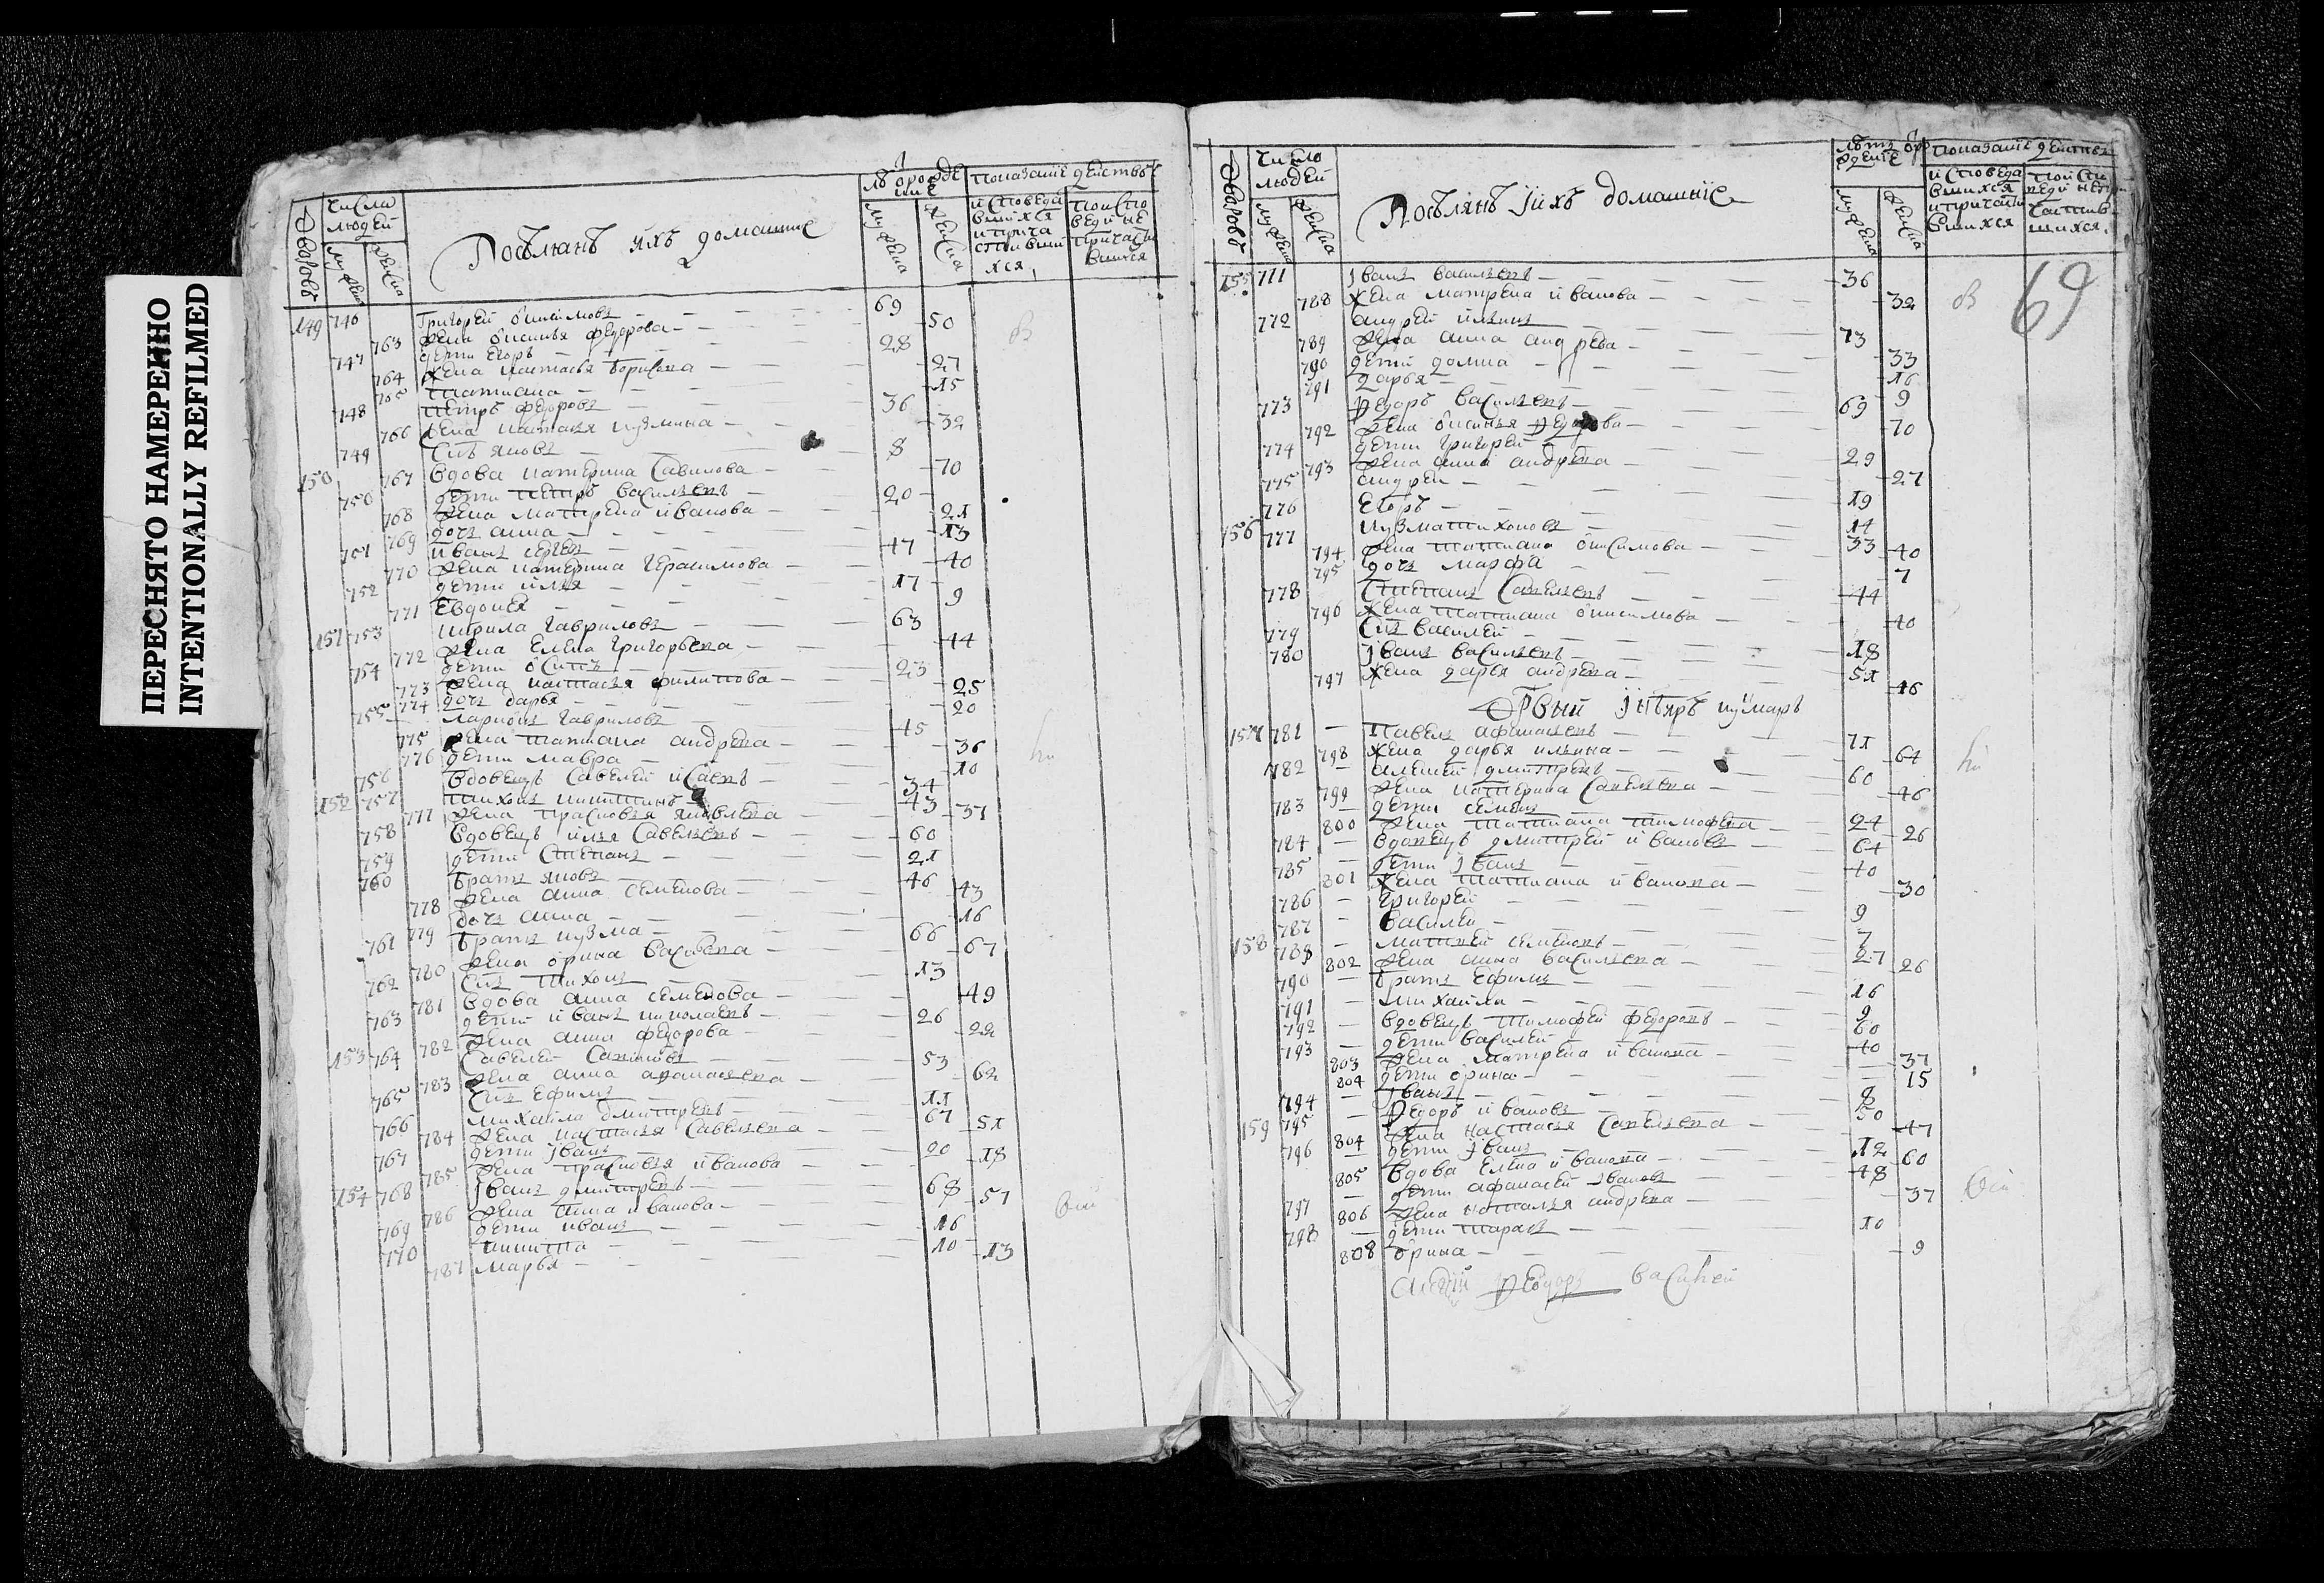 ПЕРЕСНЯТО НАМЕРЕННО
INTENTIONALLY REFILMED
Дворовъ
Число людей
Посѣлянѣ ихъ домашние
показание действъ
149 746 Григорей 69
763 жена федорова 50
747 дети егоръ 28
764 жена настасья борисова 27
765 татиана 15
748 петръ федоровъ 36
766 жена наталья кузмина 32
749 сынъ яковъ 8
150 767 вдова катерина савилова 70
750 дети петръ васильевъ 20
768 жена матрена иванова 21
769 дочь анна 13
751 иванъ 47
770 жена катерина герасимова 40
752 дети илья 17
771 евдокея 9
151 753 кирила гавриловъ 63
772 жена елена григорьева 44
754 дети осипъ 23
773 жена настасья филипова 25
774 дочь дарья 20
755 ларионъ гавриловъ 45
775 жена татиана андрева 36
776 дети мавра 10
756 вдовецъ савелей 34
152 757 тихонъ никитинъ 43
777 жена прасковья яковлева 37
758 вдовецъ илья савельевъ 60
759 дети степанъ 21
760 братъ яковъ 46
778 жена анна семенова 43
779 дочь анна 16
761 братъ кузма 66
780 жена орина васильева 67
762 сынъ тихонъ 13
781 вдова анна семенова 49
763 дети иванъ николаевъ 26
782 жена анна федорова 22
153 764 савелей 53
783 жена анна афанасьева 62
765 сынъ ефимъ 11
766 михаила дмитревъ 67
784 жена настасья савельева 51
767 дети иванъ 20
785 жена прасковья иванова 18
154 768 иванъ дмитревъ 68
786 жена анна иванова 57
769 дети иванъ 16
770 никита 10
787 марья 13
Дворовъ
Число людей
Посѣлянѣ ихъ домашние
показание действъ
69
155 771 иванъ васильевъ 36
788 жена матрена иванова 32
772 андрей ильинъ 73
789 жена анна андрева 33
790 дети домна 16
791 дарья 9
773 федоръ васильевъ 69
792 жена федорова 70
774 дети григорей 29
793 жена анна андрева 27
775 андрей 19
776 егоръ 14
156 777 кузма тихоновъ 33
794 жена татиана онисимова 40
795 дочь марфа 7
778 степанъ савельевъ 44
796 жена татиана онисимова 40
779 сынъ василей 18
780 иванъ васильевъ 51
797 жена дарья андрева 46
157 781 павелъ афанасьевъ 71
798 жена дарья ильина 64
782 алексей дмитревъ 60
799 жена катерина савельева 46
783 дети семенъ 24
800 жена татиана тимофева 26
784 вдовецъ дмитрей ивановъ 64
785 дети иванъ 40
801 жена татиана иванова 30
786 григорей 9
787 василей 7
158 788 матвей семеновъ 27
802 жена анна васильева 26
790 братъ ефимъ 16
791 михаила 9
792 вдовецъ тимофей федоровъ 60
793 дети василей 40
803 жена матрена иванова 37
804 дети орина 15
794 иванъ 8
159 795 федоръ ивановъ 50
804 жена настасья савельева 47
796 дети иванъ 12
805 вдова елена иванова 60
797 дети афанасей ивановъ 48
806 жена наталья андрева 37
798 дети тарасъ 10
808 орина 9